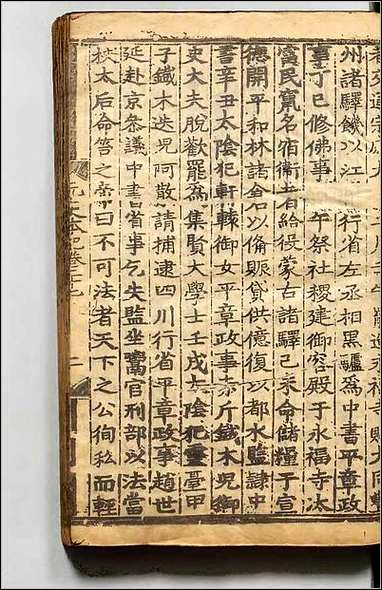 州諸驛饑以江 行省左丞相黑驢爲中書平章政
事丁巳修佛事 午祭社稷建御容殿于永福寺汰
富民竄名宿衛者給役蒙古諸驛己未命儲糧于宣
德開平和林諸倉以備賑貸供億復以都水監隷中
書辛丑太陰犯軒轅御女平章政事赤斤鐵木兒御
史大夫脫歡罷爲集賢大學士壬戌太陰犯靈臺甲
子鐵木迭兒阿散請捕逮四川行省平章政事趙世
延赴京叅議中書省事乞失監坐鬻官刑部以法當
杖太后命笞之帝曰不可法者天下之公徇私而輕
元史本紀卷二十七
二